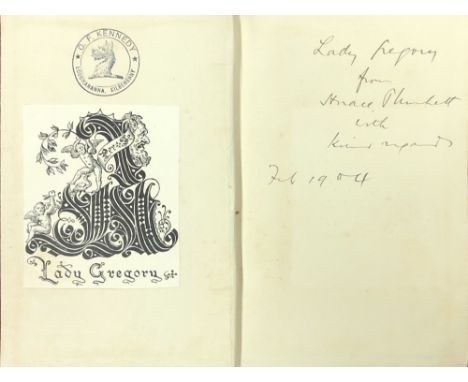 O. F. KENNEDY
KILDERMODY
Lady Gregory
Lady Gregory
from
Horace Plunkett
with
kind regards
Feb 1904